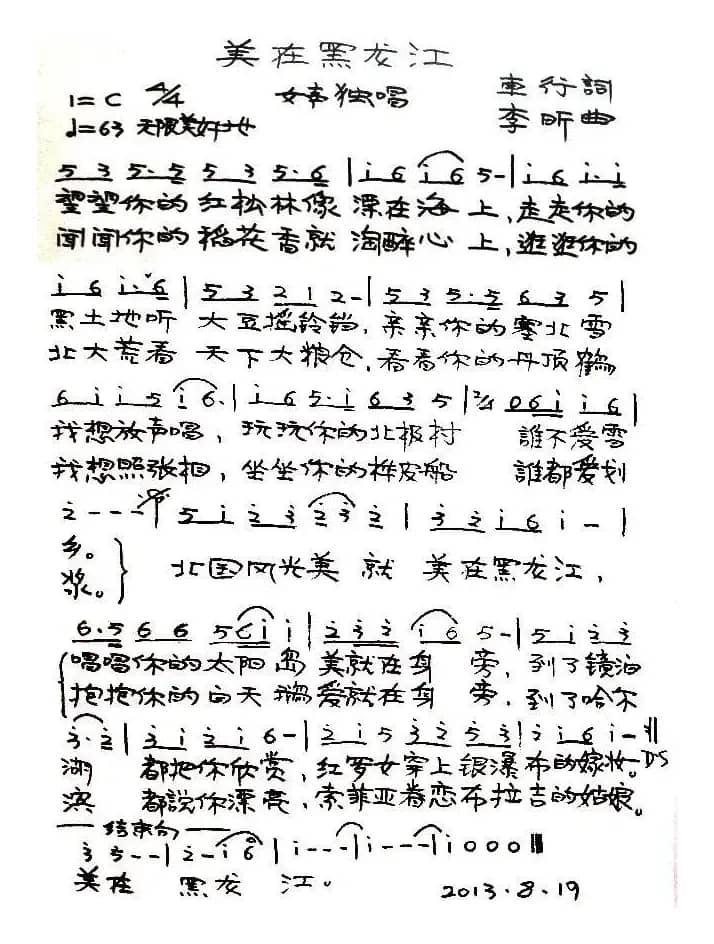 美在黑龙江
1=C 4/4 女声独唱 車行詞
♩=63 无限美好地 李昕曲
5 3 5·5 5 3 5·6 | i 6 i 6 5 - | i 6 i·i
望望你的红松林像深在海上,走走你的
闻闻你的稻花香就淘醉心上,逛逛你的
i 6 i·6 | 5 3 2 1 2 - | 5 3 5·5 6 3 5 |
黑土地听大豆摇铃铛,亲亲你的塞北雪
北大荒看天下大粮仓,看看你的丹顶鹤
6 i i 5 i 6· | i 6 5·i 6 3 5 | 2/4 0 6 i i 6 |
我想放声唱,玩玩你的北极村 誰不爱雪
我想照张相,坐坐你的桦皮船 誰都爱划
2 - - - | 5 i 2 3 2 3 2 | 3 2 i 6 i - |
乡。 北国风光美就美在黑龙江,
浆。
6·5 6 6 5 i i | 2 3 2 i 6 5 - | 5 i 2 3
唱唱你的太阳岛美就在身旁,到了镜泊
抱抱你的白天鹅爱就在身旁,到了哈尔
3·2 | 3 i 2 i 6 - | 2 i 5 3 2 5 3 | 2 i 6 i - :|| D.S
湖 都把你欣赏,红罗女穿上银瀑布的嫁妆。
滨 都說你漂亮,索菲亚眷恋布拉吉的姑娘。
结束句
3 5 - - | 2 - i 6 | i - - - | i - - - | i 0 0 0 ||
美在黑龙江。 2013.8.19